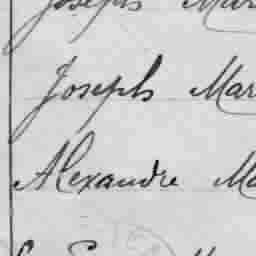 Joseph Mar
Joseph Mar
Alexandre Ma